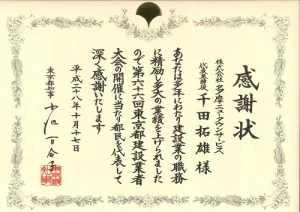 感謝状
株式会社 多摩ニュータウンサービス
代表取締役 千田拓雄 様
あなたは多年にわたり建設業の職務
に精励し多大の業績を上げられました
ので第六十六回東京都建設業者
大会の開催に当たり都民を代表して
深く感謝いたします
平成二十八年十月十七日
東京都知事 小池百合子